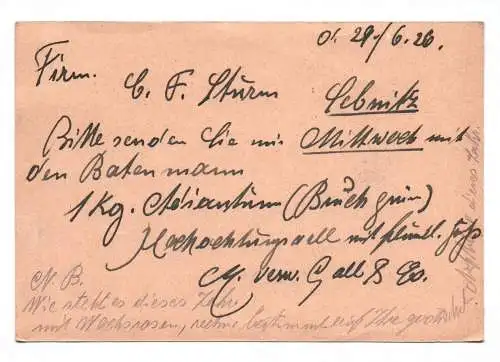 O. 29./6.26.
Firm.
C. F. Sturm
Sebnitz
Bitte senden Sie mir Mittwoch mit
den Botenmann
1 Kg. Adiantum (Bruch grün)
Hochachtungsvoll mit
M. verw. Gall
N. B.
Wie steht es dieses Jahr
mit Wachsrosen, rechne bestimmt auf Ihre
dieses Jahr.